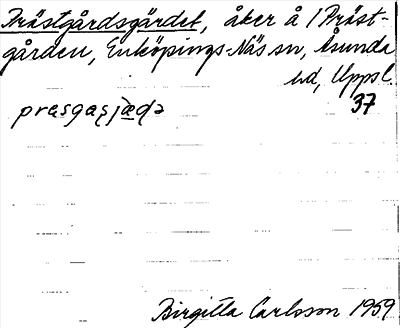 Prästgårdsgärdet, åker å 1 Präst-
gården, Enköpings-Näs sn, Åsunda
hd, Uppsl.
37
prasgasjæ̀ḍə
Birgitta Carlsson 1959